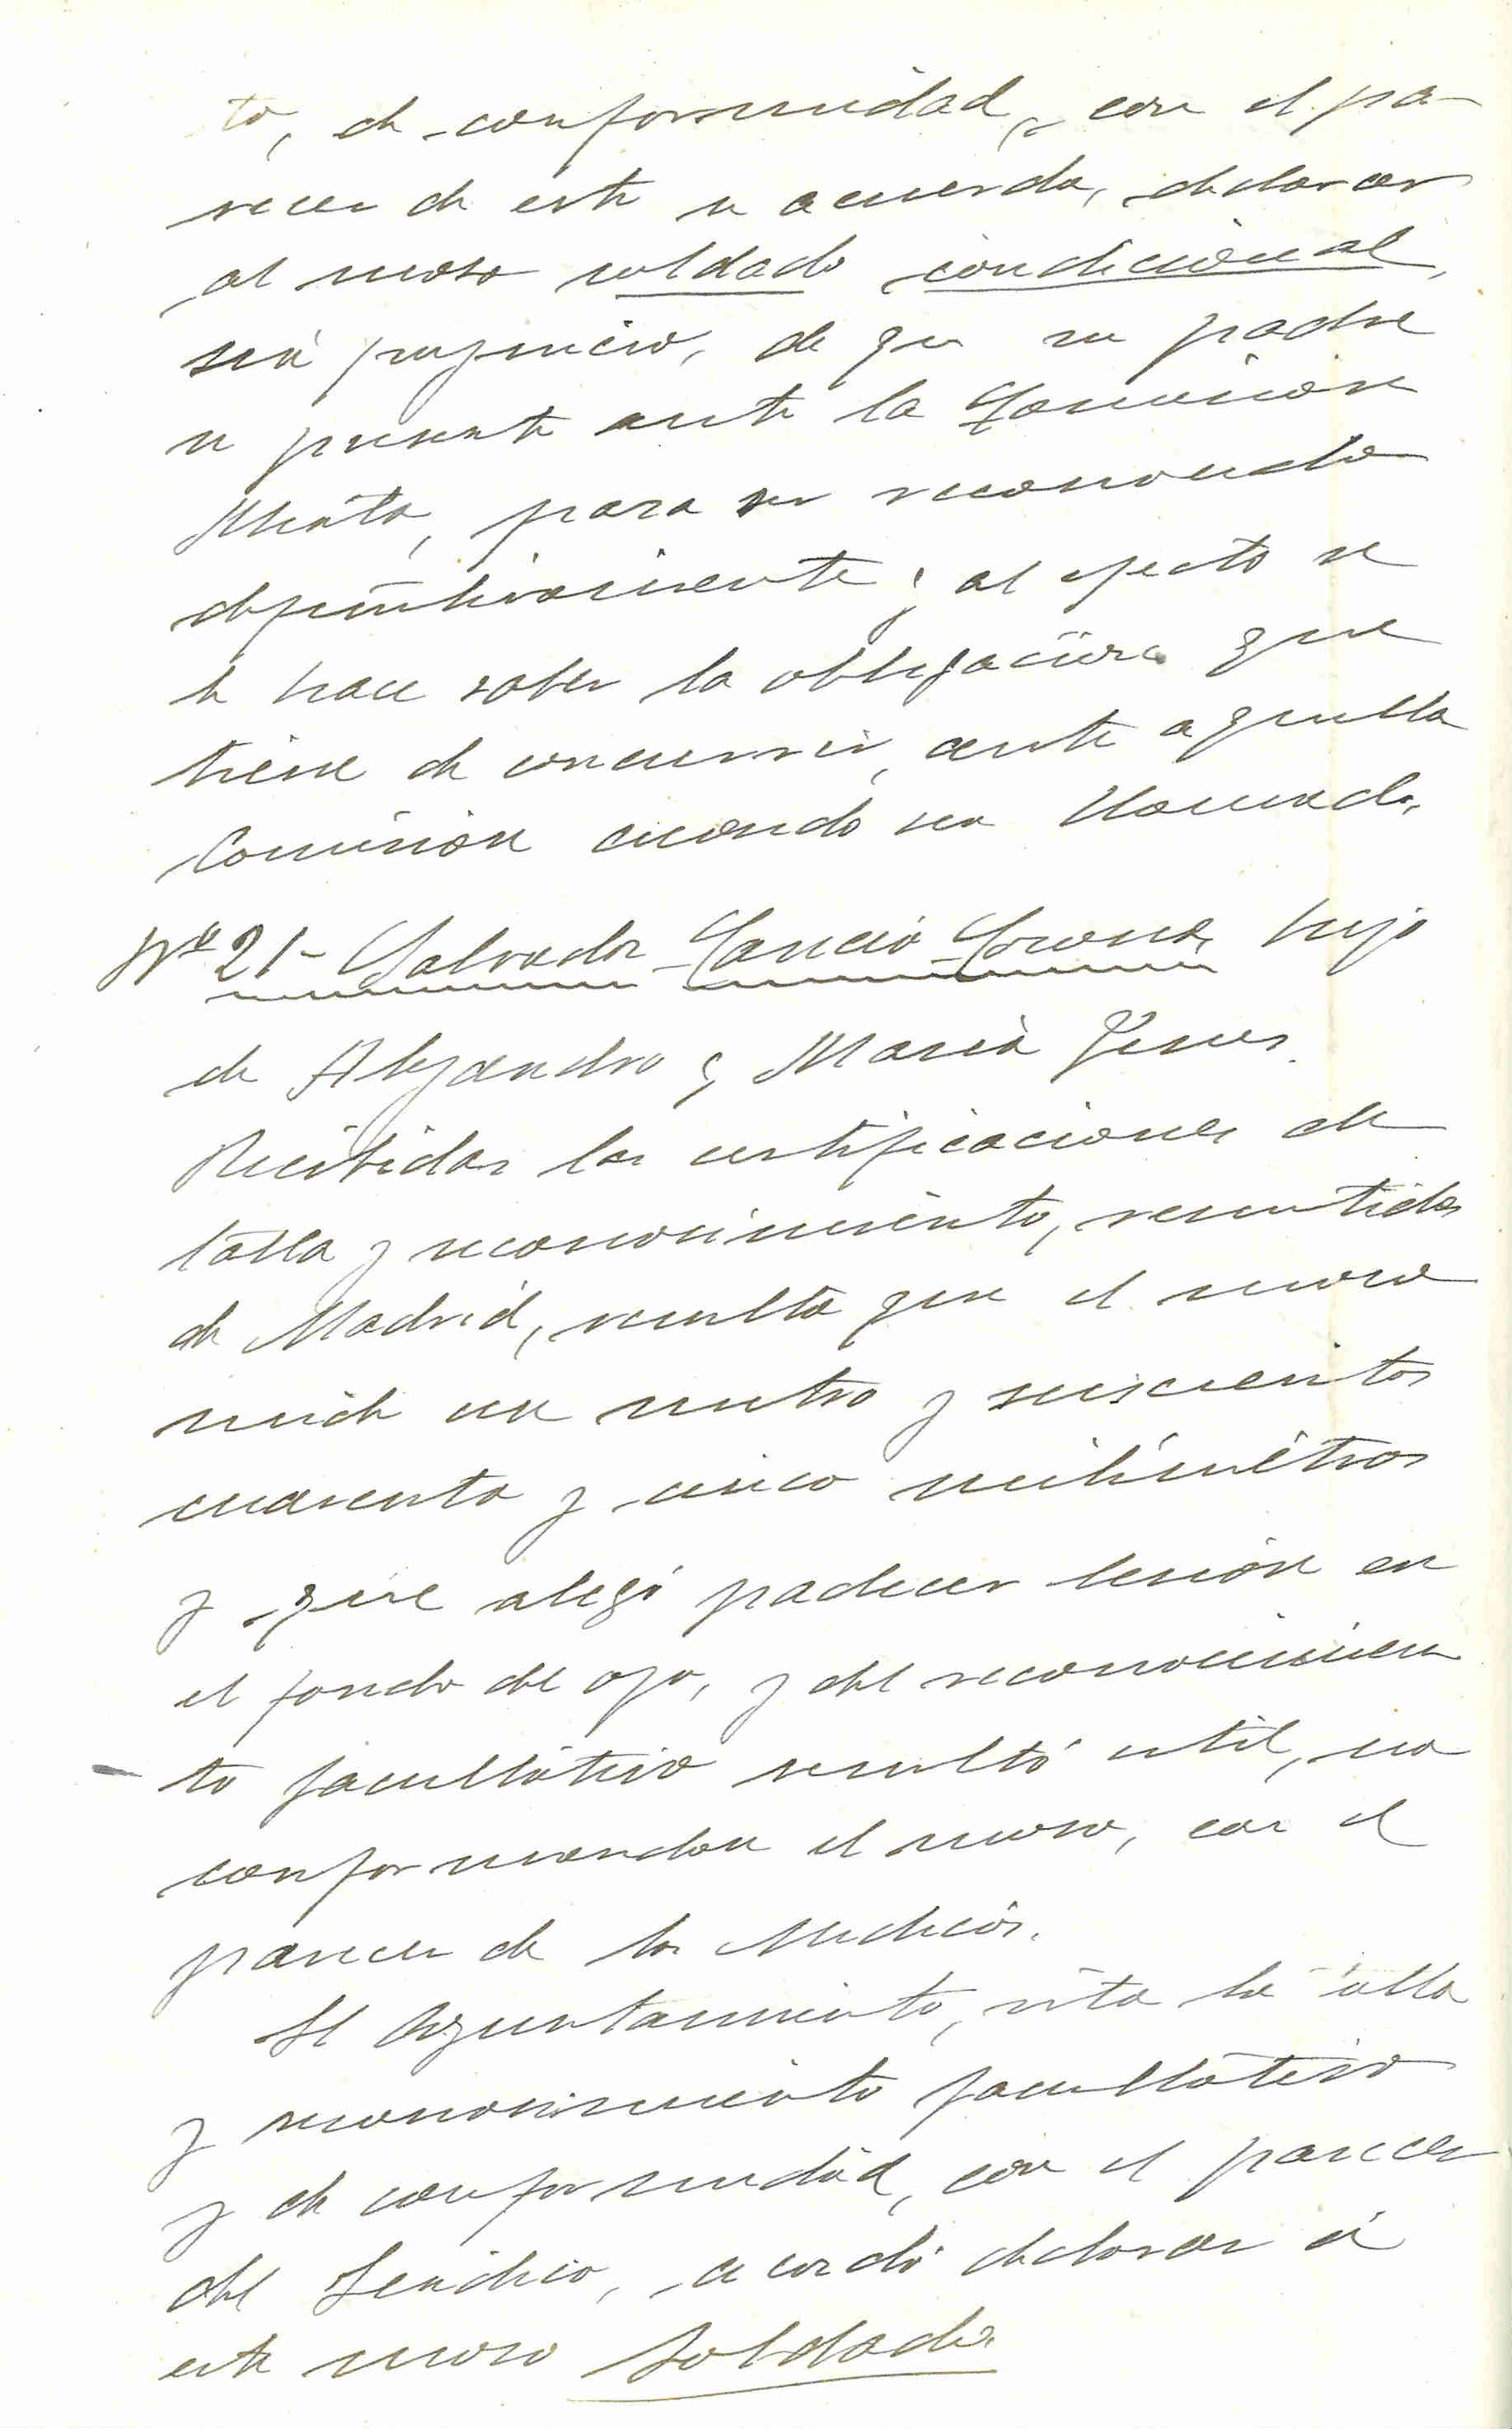 to, de conformidad, con el pa-
recer de este se acuerda, declarar
al mozo soldado condicional,
sin perjuicio, de que su padre
se presente ante la Comisión
Mixta, para ser reconocido
definitivamente; al efecto se
le hace saber la obligación que
tiene de concurrir, ante aquella
Comisión cuando sea llamado.
Nº 21- Salvador García hijo
de Alejandro y María Jesus.
Recibidas las certificaciones de
talla y reconocimiento, remitidas
de Madrid, resulta que el mozo
mide un metro y seiscientos
cuarenta y cinco milímetros
y que alegó padecer lesión en
el fondo del ojo, y del reconocimien
to facultativo resultó util, no
conformandose el mozo, con el
parecer de los Medicos.
El Ayuntamiento, vista la talla
y reconocimiento facultativo
y de conformidad, con el parecer
del Sindico, acordó declarar á
este mozo Soldado.